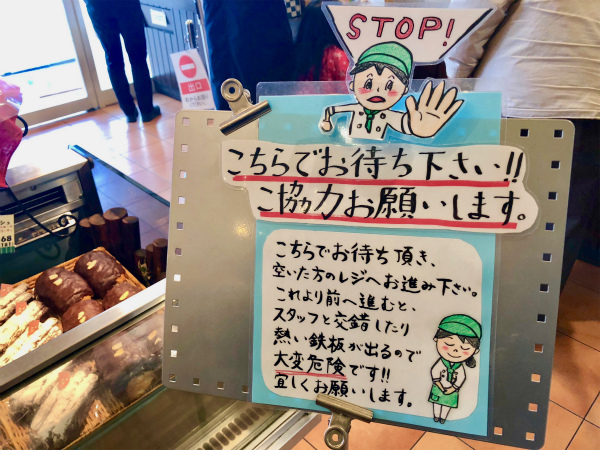 STOP!
出口
こちらでお待ち下さい!!
ご協力お願いします。
こちらでお待ち頂き、
空いた方のレジへお進み下さい。
これより前へ進むと、
スタッフと交錯したり
熱い鉄板が出るので
大変危険です!!
宜しくお願いします。
68